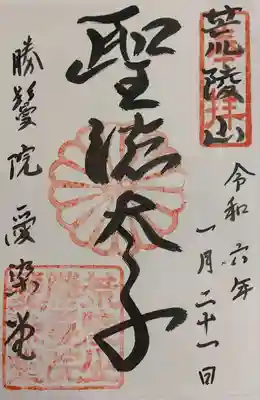 荒陵山
令和六年
一月二十一日
聖徳太子
勝鬘院 愛染堂